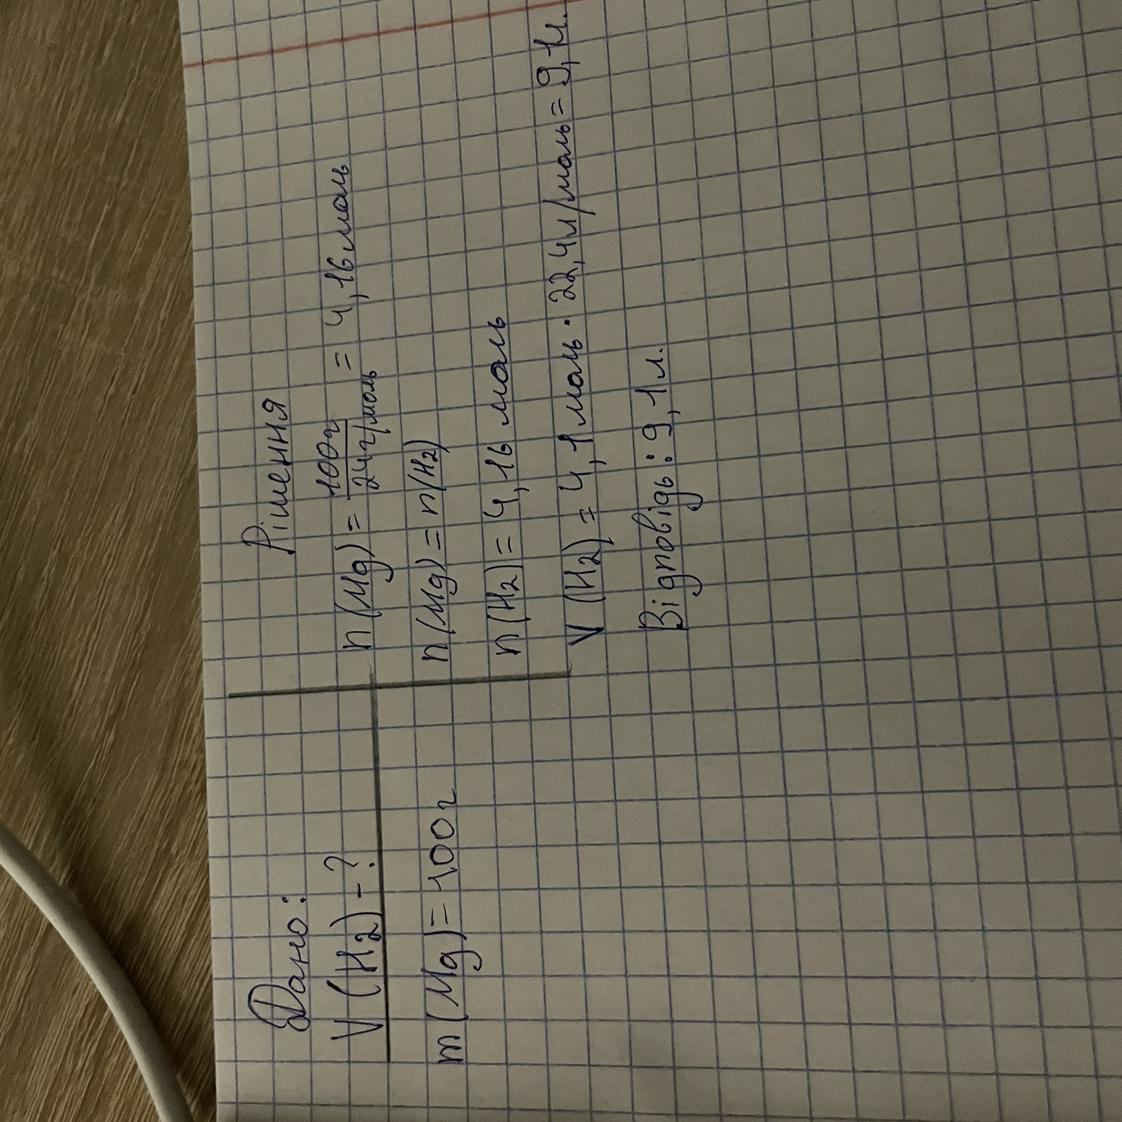 Дано:
V (H2) - ?
m (Mg) = 100г
Рішення
n (Mg) = 100г / 24г/моль = 4,16 моль
n (Mg) = n (H2)
n (H2) = 4,16 моль
V (H2) = 4,1 моль · 22,4л/моль = 9,1л.
Відповідь: 9,1л.